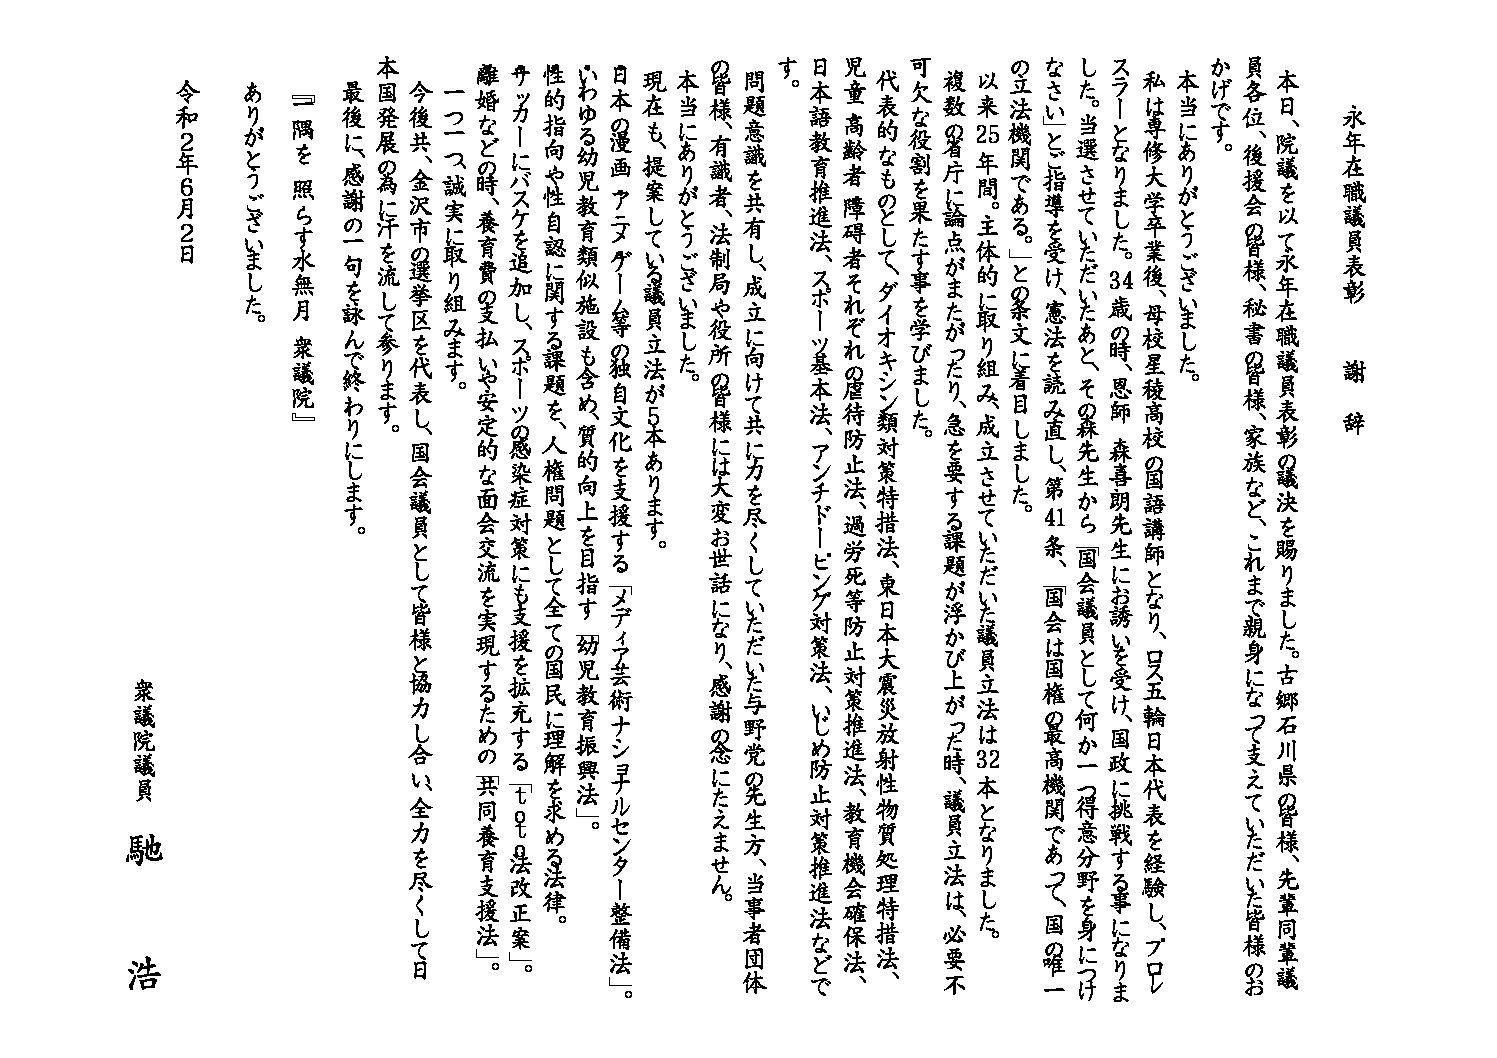 永年在職議員表彰　謝　辞
本日、院議を以て永年在職議員表彰の議決を賜りました。古郷石川県の皆様、先輩同輩議
員各位、後援会の皆様、秘書の皆様、家族など、これまで親身になって支えていただいた皆様のお
かげです。
本当にありがとうございました。
私は専修大学卒業後、母校星稜高校の国語講師となり、ロス五輪日本代表を経験し、プロレ
スラーとなりました。34歳の時、恩師　森喜朗先生にお誘いを受け、国政に挑戦する事になりま
した。当選させていただいたあと、その森先生から「国会議員として何か一つ得意分野を身につけ
なさい」とご指導を受け、憲法を読み直し、第41条、「国会は国権の最高機関であって、国の唯一
の立法機関である。」との条文に着目しました。
以来25年間。主体的に取り組み、成立させていただいた議員立法は32本となりました。
複数の省庁に論点がまたがったり、急を要する課題が浮かび上がった時、議員立法は、必要不
可欠な役割を果たす事を学びました。
代表的なものとして、ダイオキシン類対策特措法、東日本大震災放射性物質処理特措法、
児童・高齢者・障碍者それぞれの虐待防止法、過労死等防止対策推進法、教育機会確保法、
日本語教育推進法、スポーツ基本法、アンチドーピング対策法、いじめ防止対策推進法などで
す。
問題意識を共有し、成立に向けて共に力を尽くしていただいた与野党の先生方、当事者団体
の皆様、有識者、法制局や役所の皆様には大変お世話になり、感謝の念にたえません。
本当にありがとうございました。
現在も、提案している議員立法が5本あります。
日本の漫画・アニメ・ゲーム等の独自文化を支援する「メディア芸術ナショナルセンター整備法」。
いわゆる幼児教育類似施設も含め、質的向上を目指す「幼児教育振興法」。
性的指向や性自認に関する課題を、人権問題として全ての国民に理解を求める法律。
サッカーにバスケを追加し、スポーツの感染症対策にも支援を拡充する「toto法改正案」。
離婚などの時、養育費の支払いや安定的な面会交流を実現するための「共同養育支援法」。
一つ一つ、誠実に取り組みます。
今後共、金沢市の選挙区を代表し、国会議員として皆様と協力し合い、全力を尽くして日
本国発展の為に汗を流して参ります。
最後に、感謝の一句を詠んで終わりにします。
『一隅を　照らす水無月　衆議院』
ありがとうございました。
令和2年6月2日
衆議院議員　馳　浩